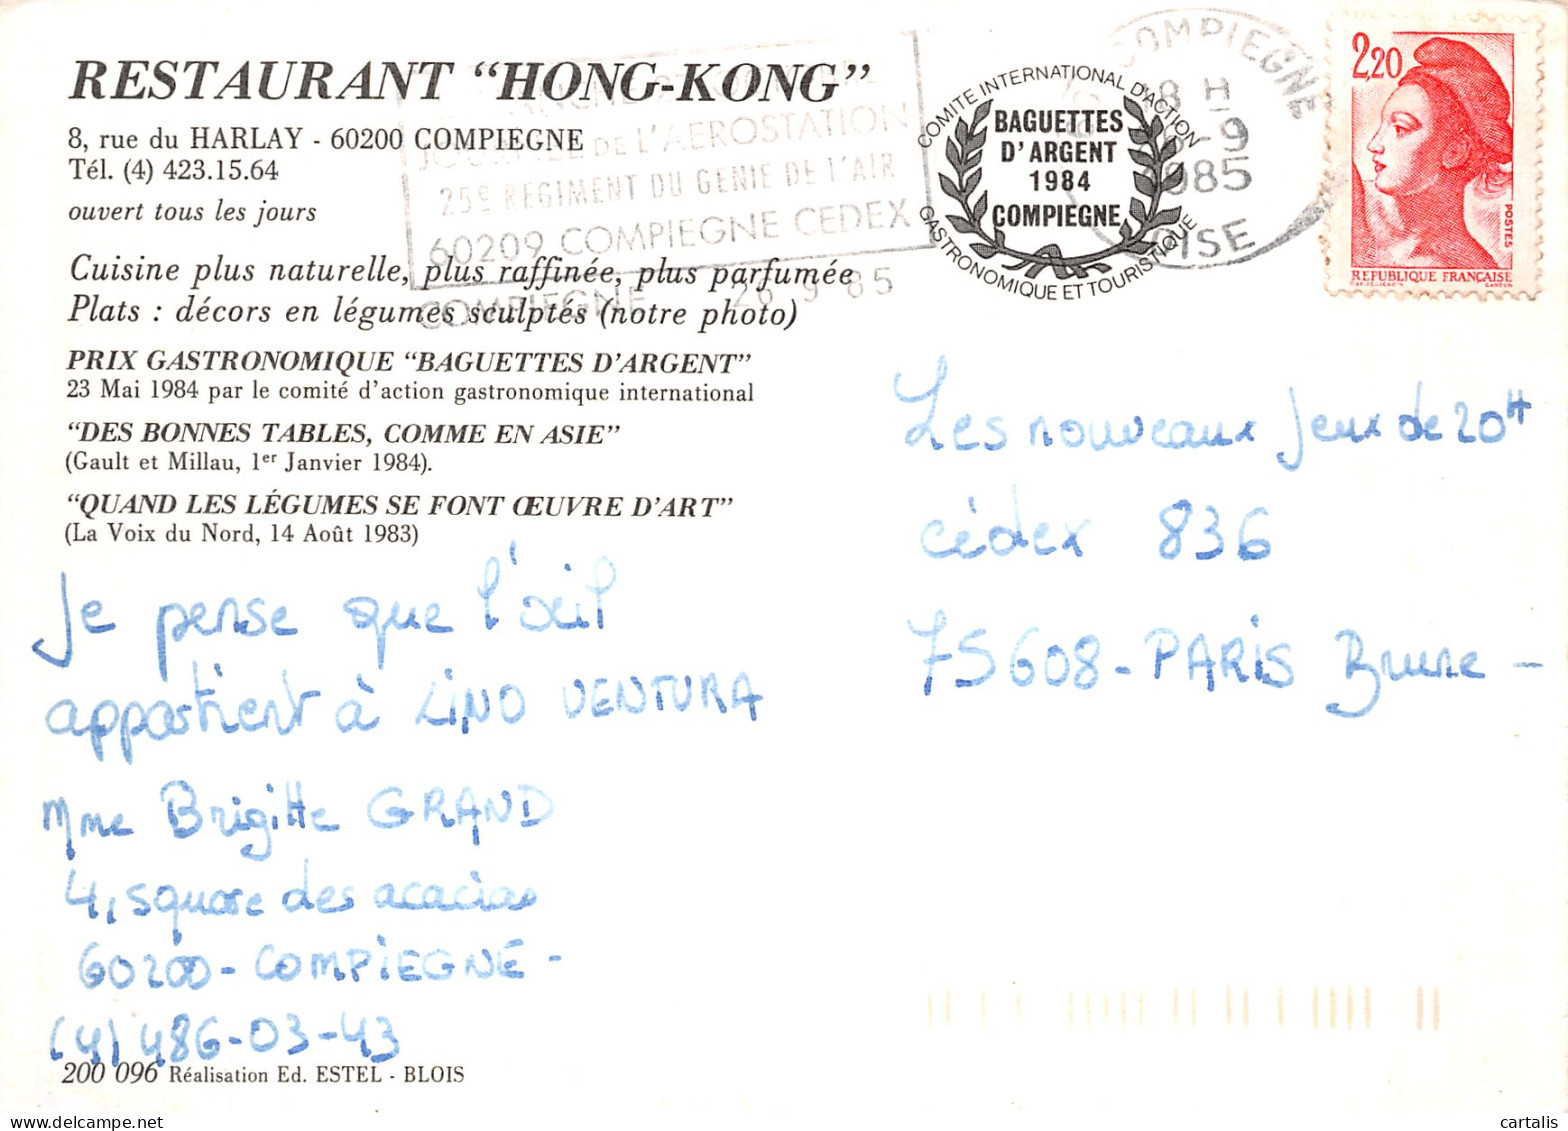 RESTAURANT “HONG-KONG”
8, rue du HARLAY - 60200 COMPIEGNE
Tél. (4) 423.15.64
ouvert tous les jours
Cuisine plus naturelle, plus raffinée, plus parfumée
Plats : décors en légumes sculptés (notre photo)
PRIX GASTRONOMIQUE “BAGUETTES D’ARGENT”
23 Mai 1984 par le comité d’action gastronomique international
“DES BONNES TABLES, COMME EN ASIE”
(Gault et Millau, 1er Janvier 1984).
“QUAND LES LÉGUMES SE FONT ŒUVRE D’ART”
(La Voix du Nord, 14 Août 1983)
DE L'AEROSTATION
25e REGIMENT DU GENIE DE L'AIR
60209 COMPIEGNE CEDEX
COMPIEGNE 26-9-85
COMITE INTERNATIONAL D'ACTION
BAGUETTES
D'ARGENT
1984
COMPIEGNE
GASTRONOMIQUE ET TOURISTIQUE
COMPIEGNE
8 H
-9
1985
OISE
2,20
POSTES
REPUBLIQUE FRANÇAISE
Je pense que l'œil
appartient à LINO VENTURA
Mme Brigitte GRAND
4, square des acacias
60200 - COMPIEGNE -
(4) 486-03-43
Les nouveaux jeux de 20H
cédex 836
75608 - PARIS Brune -
200 096 Réalisation Ed. ESTEL - BLOIS
cartalis